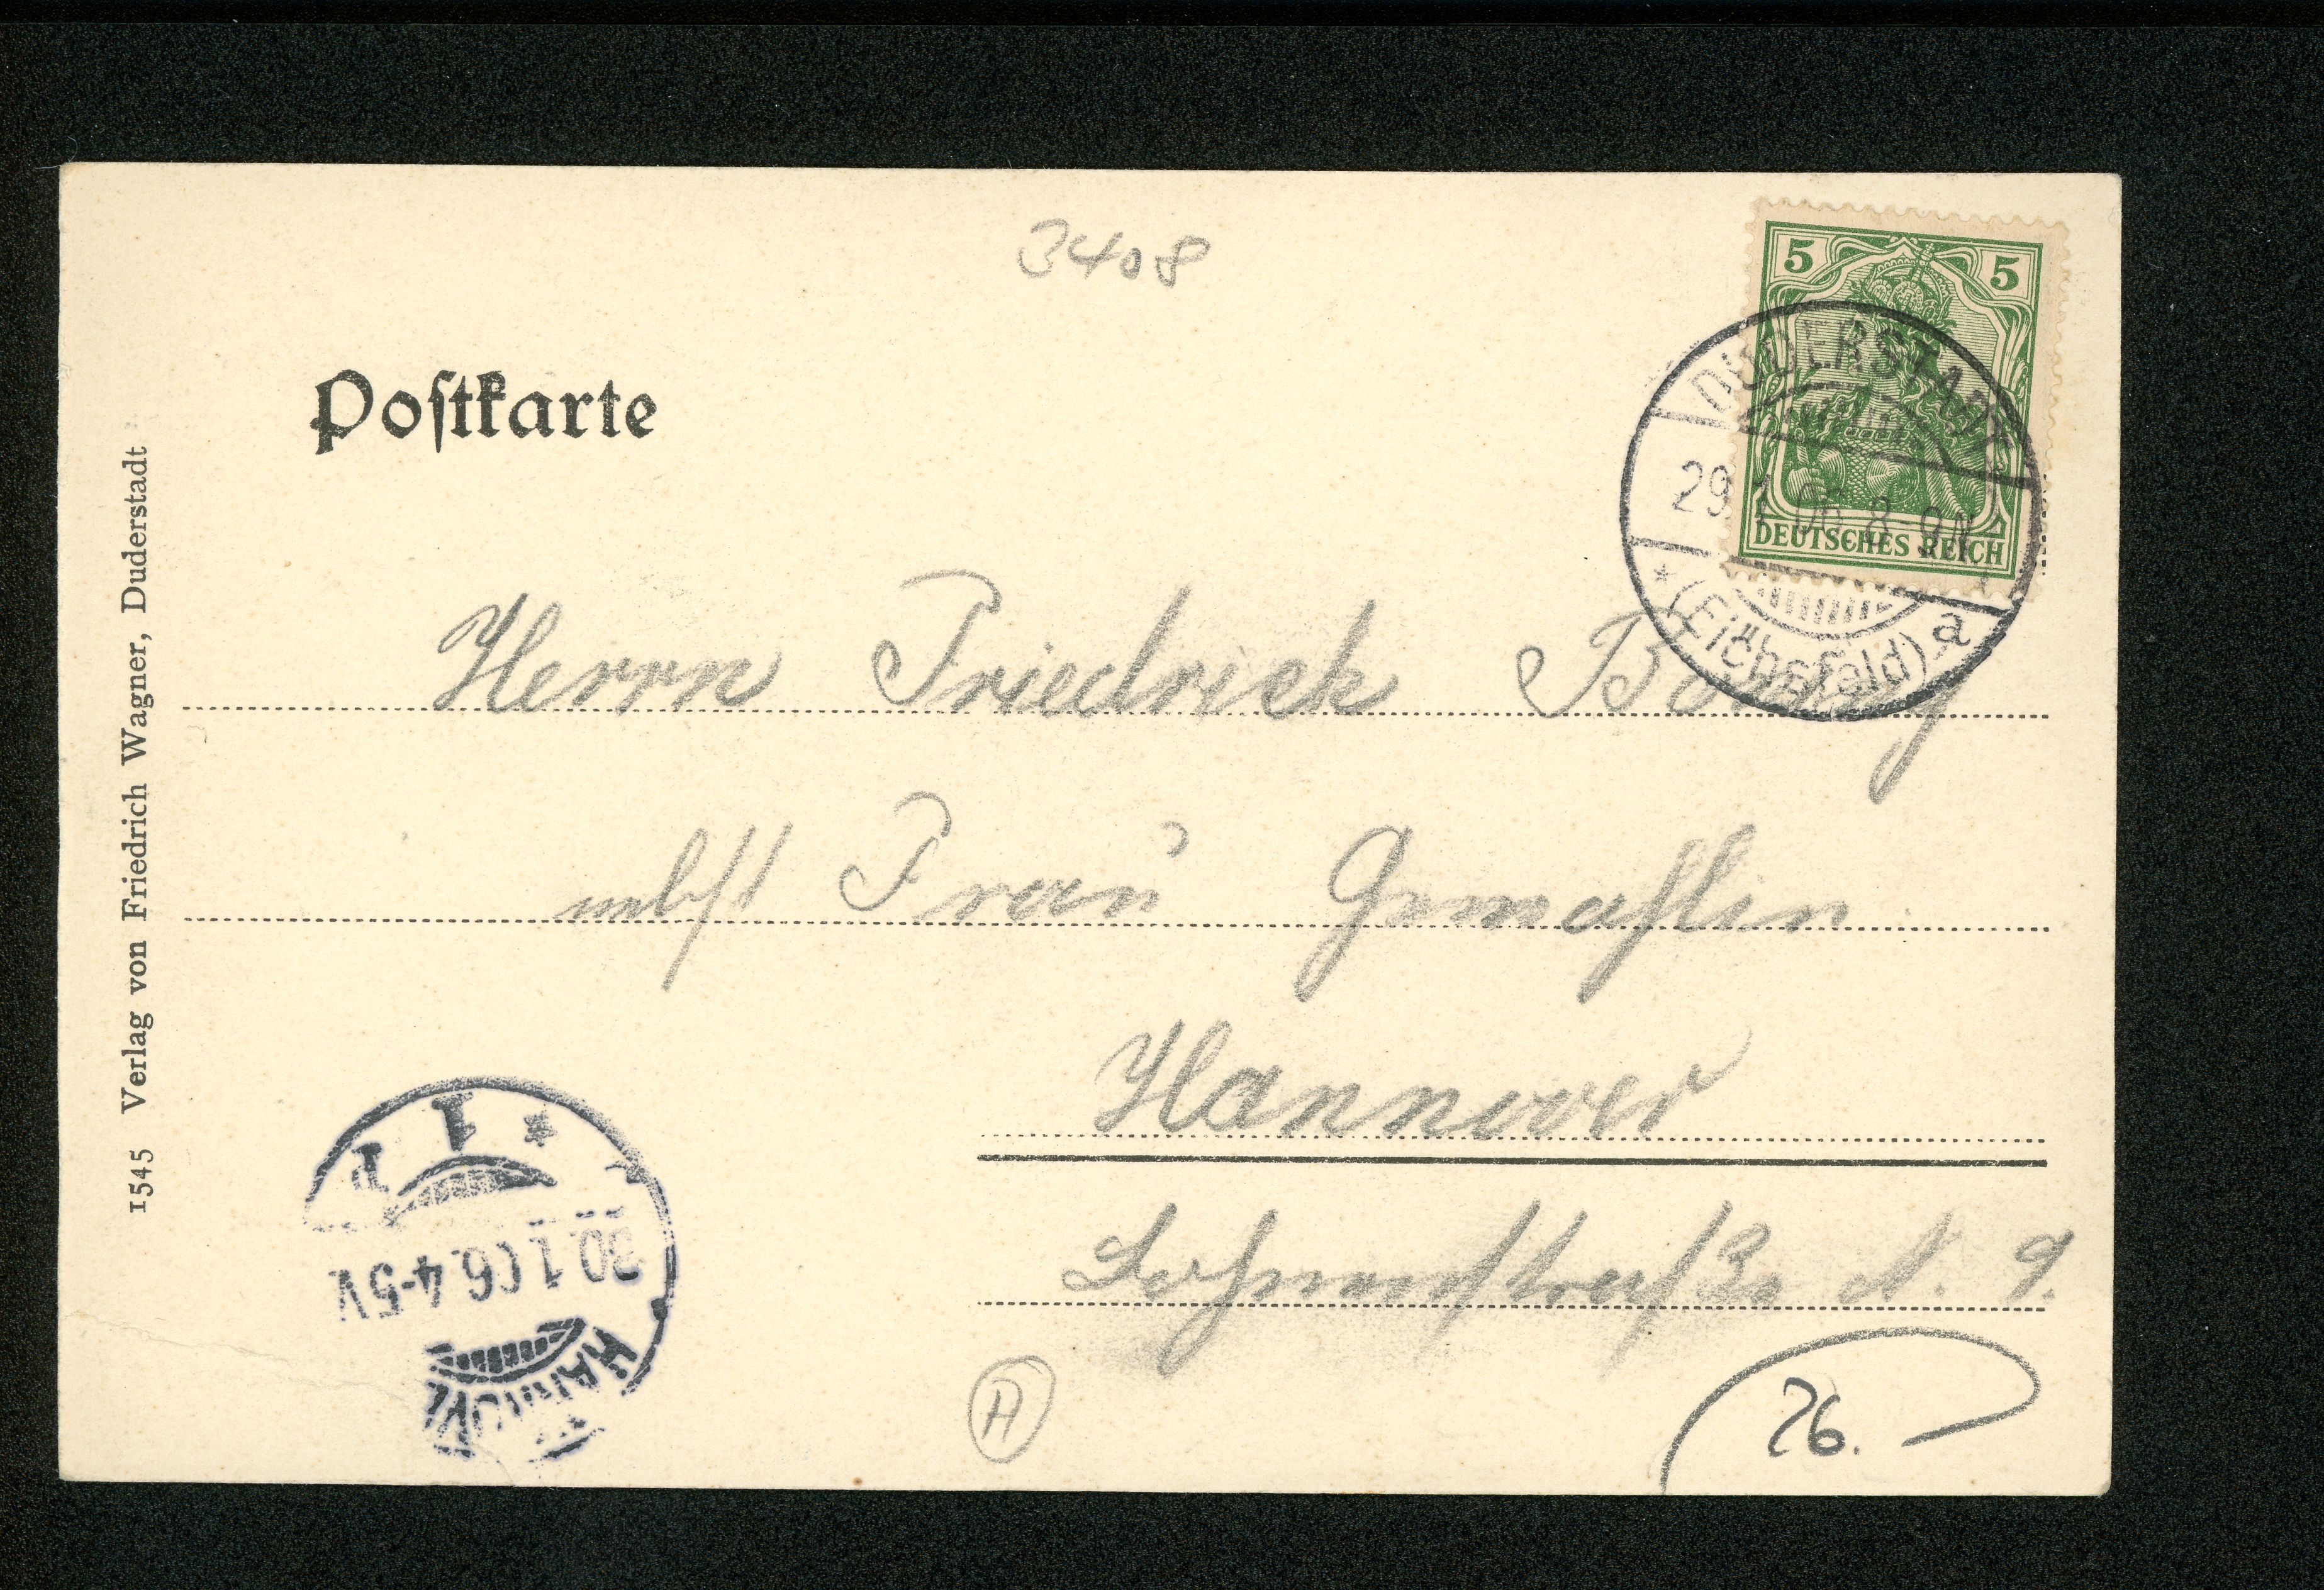 3408
5 5
DEUTSCHES REICH
DUDERSTADT
29.1.06.8-9N.
* (Eichsfeld) a
Postkarte
Herrn Friedrich
nebst Frau Gemahlin
Hannover
N. 9.
1545 Verlag von Friedrich Wagner, Duderstadt
* 1
30.1.06.4-5V
HANNOVER
H
26.-